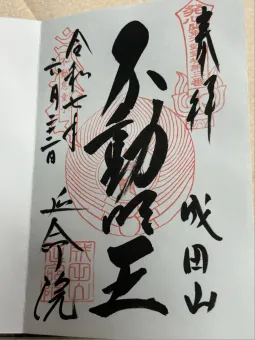 奉拝
成田山
不動明王
令和七年
六月二十二日
延命院